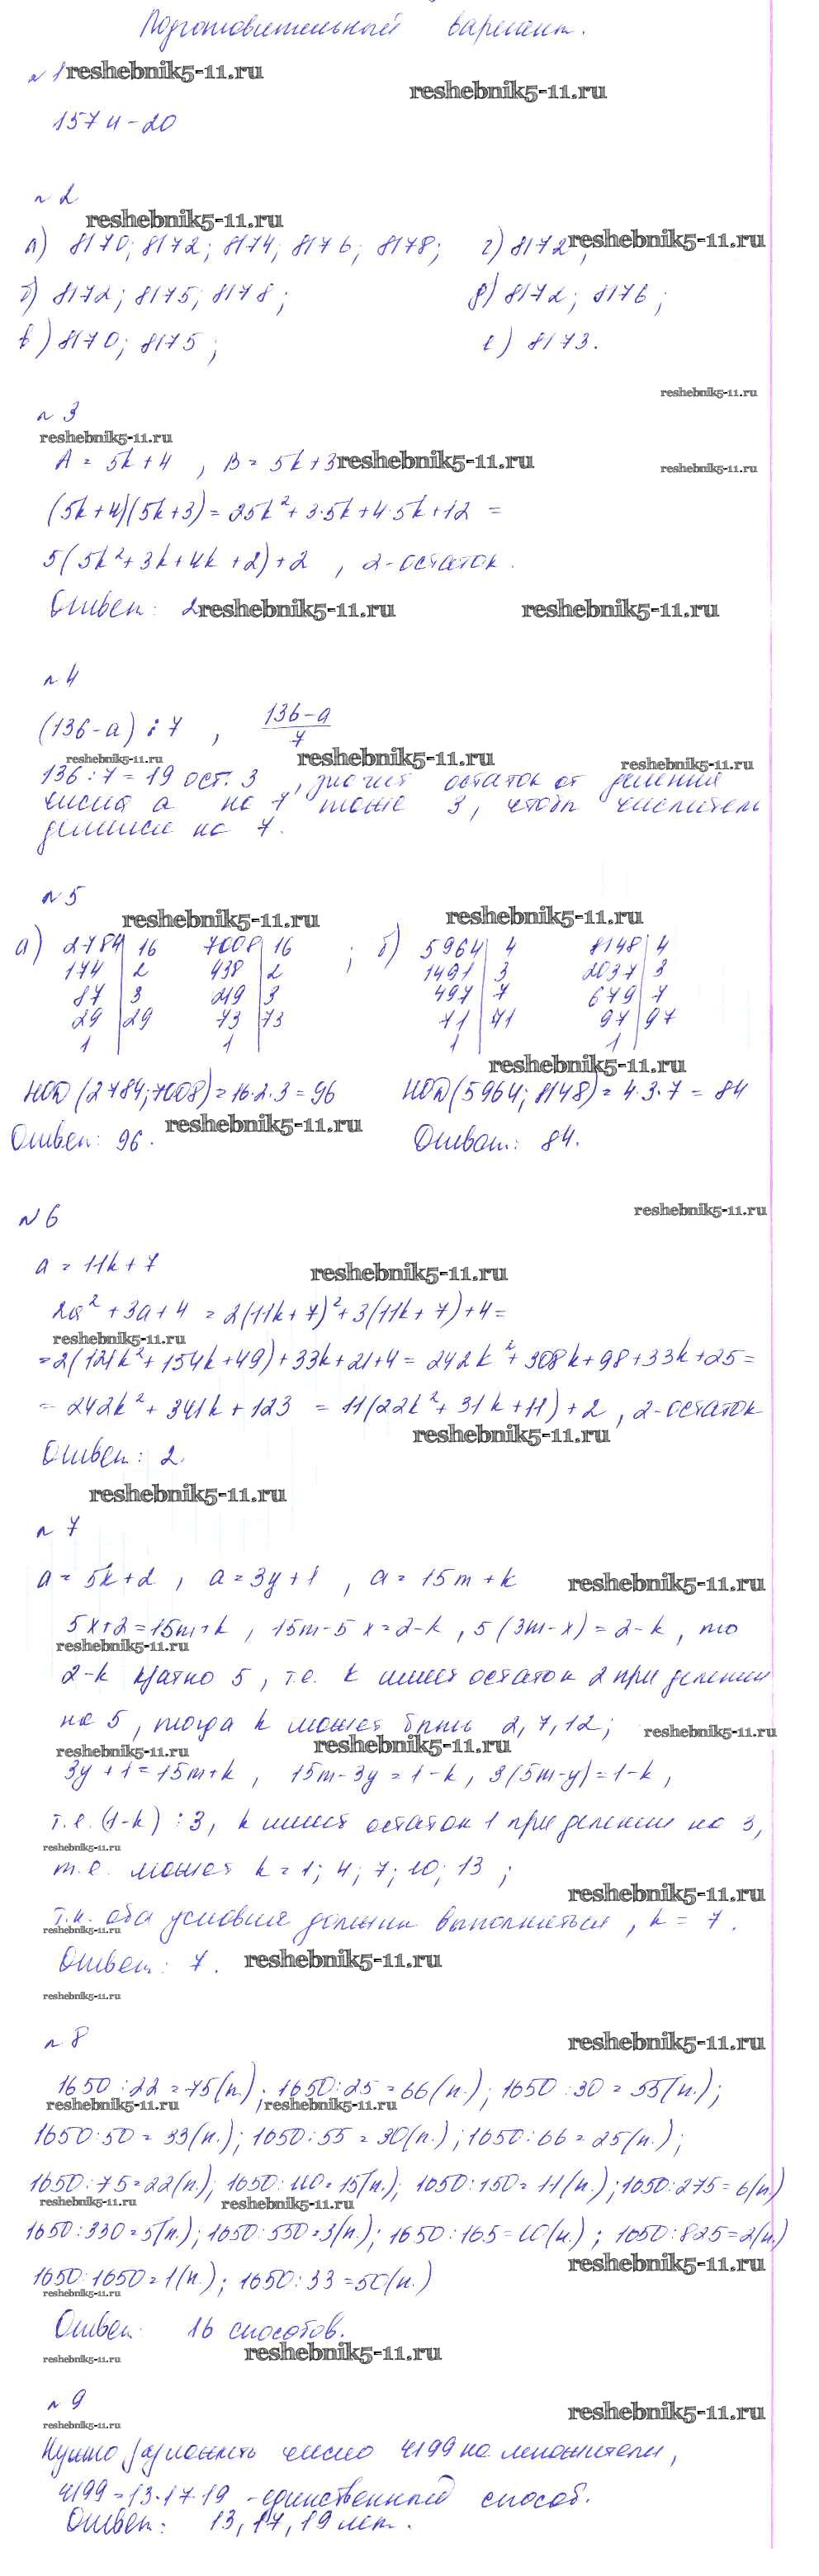 Подготовительный вариант.
№ 1 reshebnik5-11.ru
reshebnik5-11.ru
157 u - 20
№ 2
reshebnik5-11.ru
а) 8170; 8172; 8174; 8176; 8178; г) 8172; reshebnik5-11.ru
б) 8172; 8175; 8178; д) 8172; 8176;
в) 8170; 8175; е) 8173.
reshebnik5-11.ru
№ 3
reshebnik5-11.ru
A = 5k+4 , B = 5k+3 reshebnik5-11.ru reshebnik5-11.ru
(5k+4)(5k+3) = 25k² + 3·5k + 4·5k + 12 =
5(5k² + 3k + 4k + 2) + 2 , 2-остаток.
Ответ: 2 reshebnik5-11.ru reshebnik5-11.ru
№ 4
(136-a) ⋮ 7 , (136-a)/7
reshebnik5-11.ru reshebnik5-11.ru reshebnik5-11.ru
136 : 7 = 19 ост. 3 , значит остаток от деления
числа a на 7 тоже 3, чтобы числитель
делился на 7.
№ 5
reshebnik5-11.ru reshebnik5-11.ru
а) 2784 | 16 7008 | 16 ; б) 5964 | 4 8148 | 4
174 | 2 438 | 2 1491 | 3 2037 | 3
87 | 3 219 | 3 497 | 7 679 | 7
29 | 29 73 | 73 71 | 71 97 | 97
1 1 1 1
reshebnik5-11.ru
НОД (2784; 7008) = 16·2·3 = 96 НОД (5964; 8148) = 4·3·7 = 84
Ответ: 96. reshebnik5-11.ru Ответ: 84.
№ 6 reshebnik5-11.ru
a = 11k + 7
reshebnik5-11.ru
2a² + 3a + 4 = 2(11k+7)² + 3(11k+7) + 4 =
reshebnik5-11.ru
= 2(121k² + 154k + 49) + 33k + 21 + 4 = 242k² + 308k + 98 + 33k + 25 =
= 242k² + 341k + 123 = 11(22k² + 31k + 11) + 2 , 2-остаток
reshebnik5-11.ru
Ответ: 2.
reshebnik5-11.ru
№ 7
a = 5k+2 , a = 3y+1 , a = 15m + k reshebnik5-11.ru
5x+2 = 15m+k , 15m-5x = 2-k , 5(3m-x) = 2-k , то
reshebnik5-11.ru
2-k кратно 5, т.е. k имеет остаток 2 при делении
на 5, тогда k может быть 2, 7, 12; reshebnik5-11.ru
reshebnik5-11.ru reshebnik5-11.ru
3y+1 = 15m+k , 15m-3y = 1-k , 3(5m-y) = 1-k ,
т.е. (1-k) ⋮ 3, k имеет остаток 1 при делении на 3,
reshebnik5-11.ru
т.е. может k = 1; 4; 7; 10; 13 ;
reshebnik5-11.ru
т.к. оба условия должны выполняться, k = 7.
reshebnik5-11.ru
Ответ: 7. reshebnik5-11.ru
reshebnik5-11.ru
№ 8 reshebnik5-11.ru
1650 : 22 = 75(п.) ; 1650 : 25 = 66(п.) ; 1650 : 30 = 55(п.) ;
reshebnik5-11.ru reshebnik5-11.ru
1650 : 50 = 33(п.) ; 1650 : 55 = 30(п.) ; 1650 : 66 = 25(п.) ;
1650 : 75 = 22(п.) ; 1650 : 110 = 15(п.) ; 1650 : 150 = 11(п.) ; 1650 : 275 = 6(п)
reshebnik5-11.ru reshebnik5-11.ru
1650 : 330 = 5(п.) ; 1650 : 550 = 3(п.) ; 1650 : 165 = 10(п.) ; 1650 : 825 = 2(п.)
reshebnik5-11.ru
1650 : 1650 = 1(п.) ; 1650 : 33 = 50(п.)
reshebnik5-11.ru
Ответ 16 способов.
reshebnik5-11.ru reshebnik5-11.ru
№ 9
reshebnik5-11.ru
reshebnik5-11.ru
Нужно разложить число 4199 на множители,
4199 = 13·17·19 - единственный способ.
Ответ: 13, 17, 19 лет.